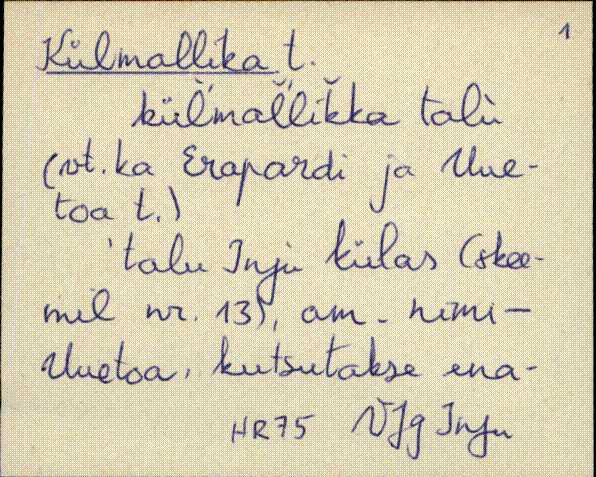 1
Külmallika t.
külmallikka talu
(vt. ka Erapardi ja Uue-
toa t.)
'talu Inju külas (skee-
mil nr. 13), am. nimi-
Uuetoa, kutsutakse ena-
HR75 VJg Inju